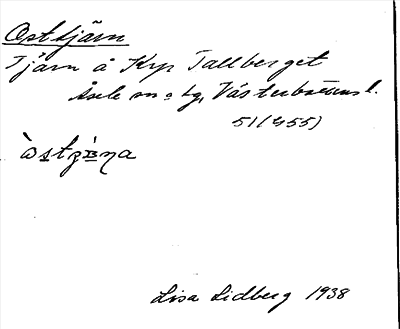 Osttjärn
Tjärn å Krp Tallberget
Åsele sn o tg, Västerbottens l.
51(455)
òstʒæ̀ɳa
Lisa Lidberg 1938